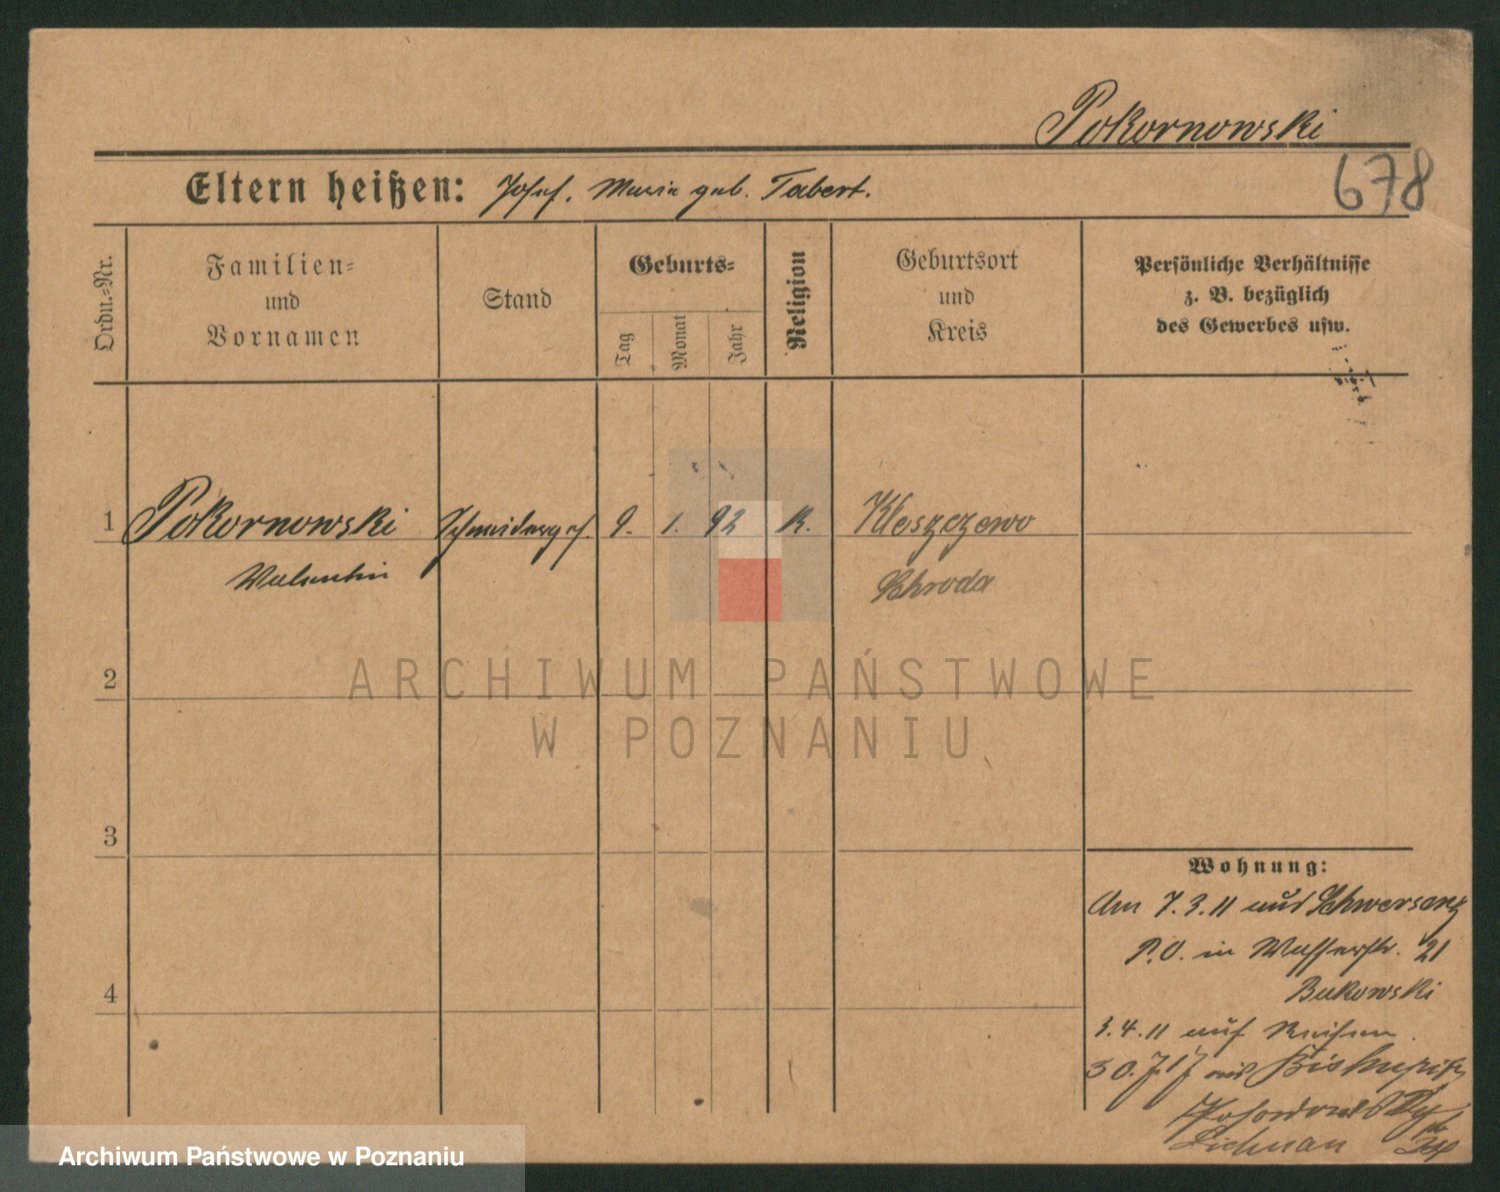 Pokornowski
678
Eltern heißen: Josef. Maria geb. Tabert.
Ordn.-Nr.
Familien-
und
Vornamen
Stand
Geburts-
Tag
Monat
Jahr
Religion
Geburtsort
und
Kreis
Persönliche Verhältnisse
z. B. bezüglich
des Gewerbes usw.
1 Pokornowski Schneiderges. 9. 1. 92 K. Kleszczewo
Valentin Schroda
2
3
4
Wohnung:
Am 7.3.11 aus Schwersenz
P.O. in Wasserstr. 21
Bukowski
3.4.11 auf Reisen
30.7.17 aus
ARCHIWUM PAŃSTWOWE
W POZNANIU
Archiwum Państwowe w Poznaniu